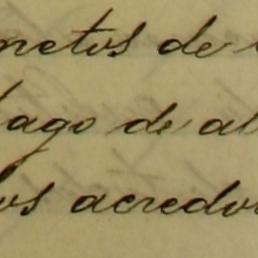 netos de
pago de al
os acredor